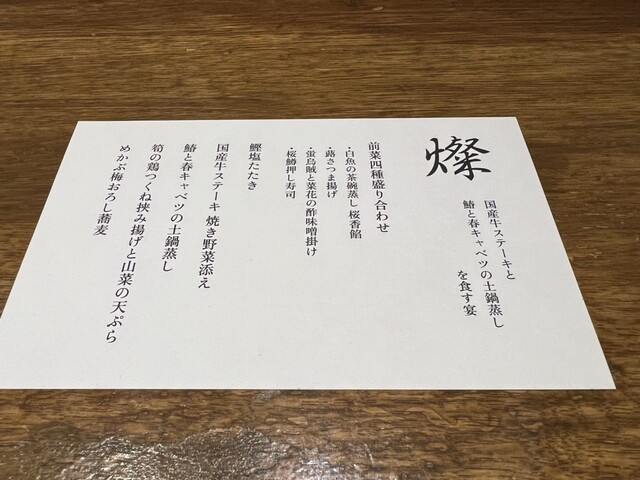 燦
国産牛ステーキと
鰆と春キャベツの土鍋蒸し
を食す宴
前菜四種盛り合わせ
・白魚の茶碗蒸し 桜香餡
・蕗さつま揚げ
・蛍烏賊と菜花の酢味噌掛け
・桜鱒押し寿司
鰹塩たたき
国産牛ステーキ 焼き野菜添え
鰆と春キャベツの土鍋蒸し
筍の鶏つくね挟み揚げと山菜の天ぷら
めかぶ梅おろし蕎麦